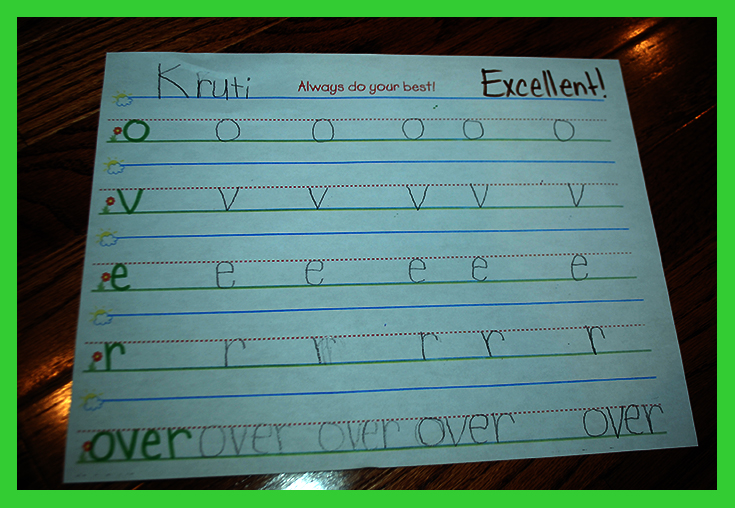 Kruti Always do your best! Excellent!
o o o o o o
v v v v v v
e e e e e e
r r r r r r
over over over over over